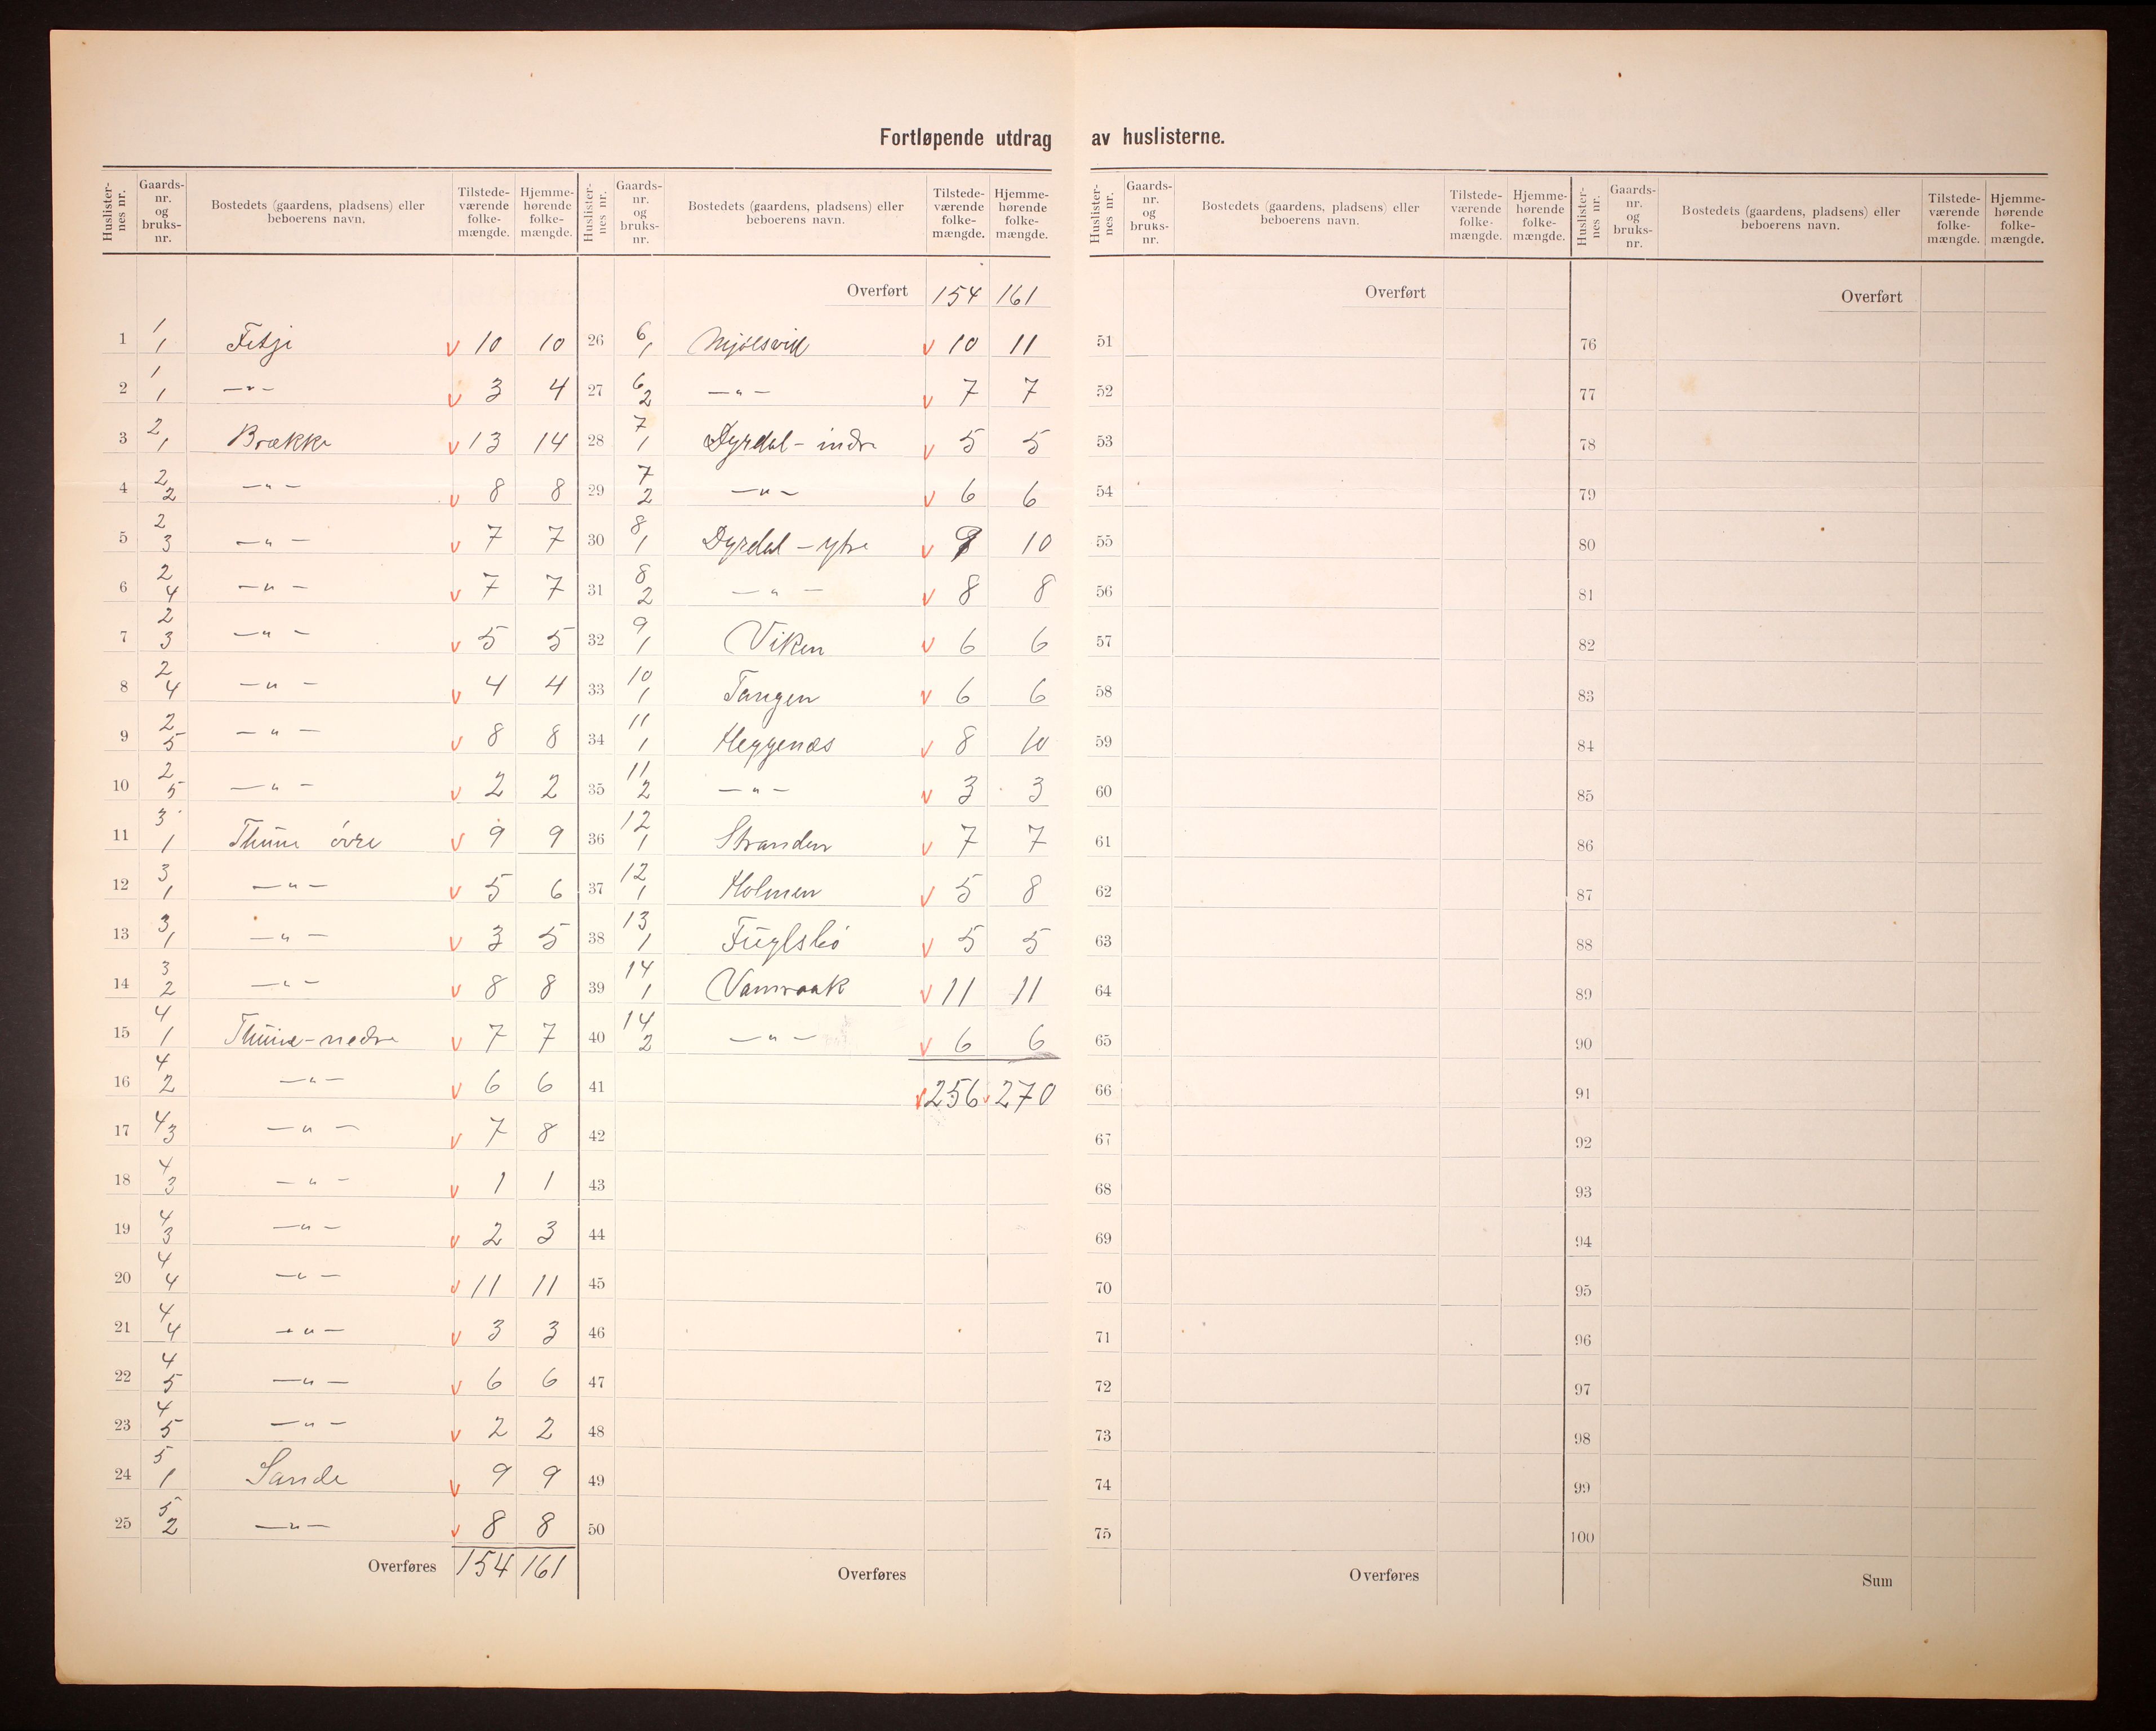 Fortløpende utdrag av huslisterne.
Huslister-nes nr. Gaards-nr. og bruks-nr. Bostedets (gaardens, pladsens) eller beboerens navn. Tilstede-værende folke-mængde. Hjemme-hørende folke-mængde.
1 1/1 Fetje v 10 10
2 1/1 — " — v 3 4
3 2/1 Brække v 13 14
4 2/2 — " — v 8 8
5 2/3 — " — v 7 7
6 2/4 — " — v 7 7
7 2/3 — " — v 5 5
8 2/4 — " — v 4 4
9 2/5 — " — v 8 8
10 2/5 — " — v 2 2
11 3/1 Thune øvre v 9 9
12 3/1 — " — v 5 6
13 3/1 — " — v 3 5
14 3/2 — " — v 8 8
15 4/1 Thune - nedre v 7 7
16 4/2 — " — v 6 6
17 4/3 — " — v 7 8
18 4/3 — " — v 1 1
19 4/3 — " — v 2 3
20 4/4 — " — v 11 11
21 4/4 — " — v 3 3
22 4/5 — " — v 6 6
23 4/5 — " — v 2 2
24 5/1 Sande v 9 9
25 5/2 — " — v 8 8
Overføres 154 161
Huslister-nes nr. Gaards-nr. og bruks-nr. Bostedets (gaardens, pladsens) eller beboerens navn. Tilstede-værende folke-mængde. Hjemme-hørende folke-mængde.
Overført 154 161
26 6/1 Mjölsvik v 10 11
27 6/2 — " — v 7 7
28 7/1 Dyrdal - indre v 5 5
29 7/2 — " — v 6 6
30 8/1 Dyrdal - ytre v 9 10
31 8/2 — " — v 8 8
32 9/1 Viken v 6 6
33 10/1 Tangen v 6 6
34 11/1 Heggenæs v 8 10
35 11/2 — " — v 3 3
36 12/1 Stranden v 7 7
37 12/1 Holmen v 5 8
38 13/1 Fuglsbö v 5 5
39 14/1 Vamraak v 11 11
40 14/2 — " — v 6 6
41 v 256 v 270
42
43
44
45
46
47
48
49
50
Overføres
Huslister-nes nr. Gaards-nr. og bruks-nr. Bostedets (gaardens, pladsens) eller beboerens navn. Tilstede-værende folke-mængde. Hjemme-hørende folke-mængde.
Overført
51
52
53
54
55
56
57
58
59
60
61
62
63
64
65
66
67
68
69
70
71
72
73
74
75
Overføres
Huslister-nes nr. Gaards-nr. og bruks-nr. Bostedets (gaardens, pladsens) eller beboerens navn. Tilstede-værende folke-mængde. Hjemme-hørende folke-mængde.
Overført
76
77
78
79
80
81
82
83
84
85
86
87
88
89
90
91
92
93
94
95
96
97
98
99
100
Sum